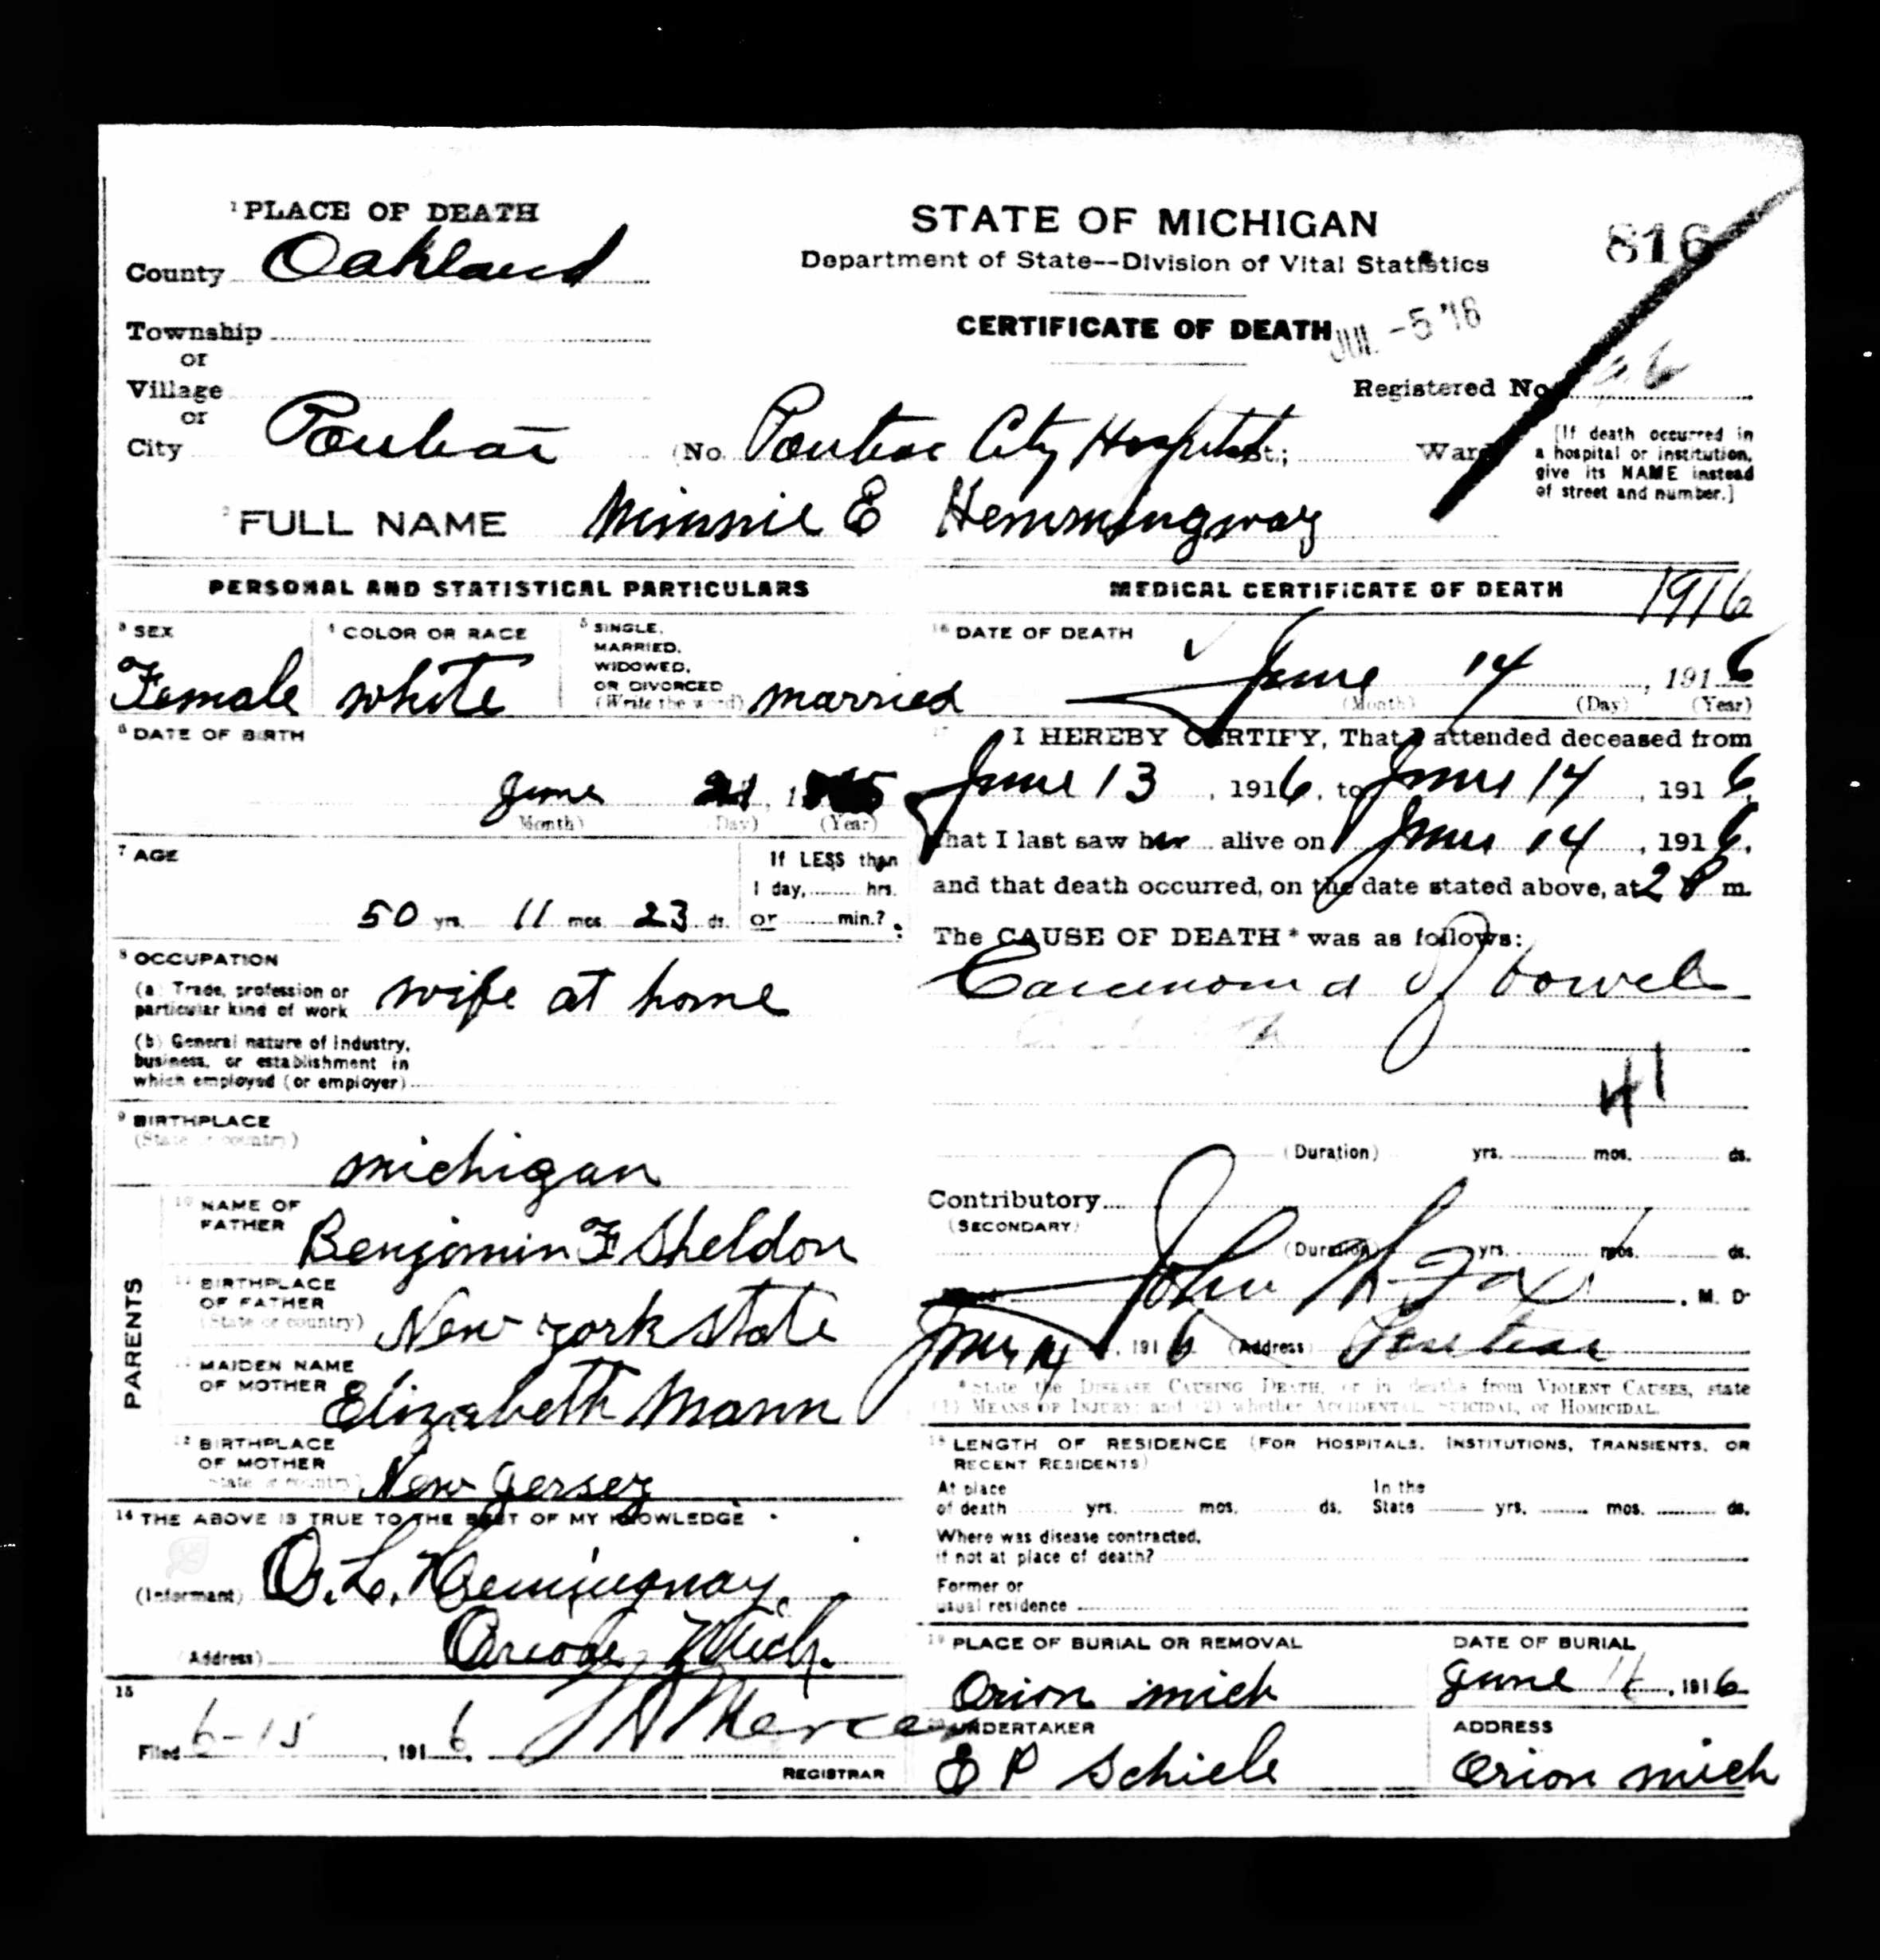 1 PLACE OF DEATH
County Oakland
Township
or
Village
or
City Pontiac (No. Pontiac City Hospital St.; Ward
STATE OF MICHIGAN
Department of State--Division of Vital Statistics
CERTIFICATE OF DEATH
JUL -5 '16
816
Registered No.
[If death occurred in
a hospital or institution,
give its NAME instead
of street and number.]
2 FULL NAME Minnie E Hemmingway
PERSONAL AND STATISTICAL PARTICULARS
3 SEX
Female
4 COLOR OR RACE
white
5 SINGLE,
MARRIED,
WIDOWED,
OR DIVORCED
(Write the word) married
6 DATE OF BIRTH
June 21, 1
(Month) (Day) (Year)
7 AGE
50 yrs. 11 mos. 23 ds.
If LESS than
1 day, hrs.
or min.?
8 OCCUPATION
(a) Trade, profession or
particular kind of work wife at home
(b) General nature of industry,
business, or establishment in
which employed (or employer)
9 BIRTHPLACE
(State or country)
Michigan
PARENTS
10 NAME OF
FATHER Benjamin F Sheldon
11 BIRTHPLACE
OF FATHER
(State or country) New York State
12 MAIDEN NAME
OF MOTHER Elizabeth Mann
13 BIRTHPLACE
OF MOTHER
(State or country) New Jersey
14 THE ABOVE IS TRUE TO THE BEST OF MY KNOWLEDGE
(Informant) O. L. Hemingway
(Address) Mich.
15
Filed 6-15, 1916. Mercer
REGISTRAR
MEDICAL CERTIFICATE OF DEATH
1916
16 DATE OF DEATH
June 14, 1916
(Month) (Day) (Year)
17 I HEREBY CERTIFY, That I attended deceased from
June 13, 1916, to June 14, 1916,
that I last saw her alive on June 14, 1916,
and that death occurred, on the date stated above, at 2 P m.
The CAUSE OF DEATH* was as follows:
Carcinoma of bowel
41
(Duration) yrs. mos. ds.
Contributory
(SECONDARY)
(Duration) yrs. mos. ds.
(Signed) John W. Fox, M. D.
June 14, 1916 (Address) Pontiac
*State the DISEASE CAUSING DEATH, or in deaths from VIOLENT CAUSES, state
(1) MEANS OF INJURY; and (2) whether ACCIDENTAL, SUICIDAL, OR HOMICIDAL.
18 LENGTH OF RESIDENCE (FOR HOSPITALS, INSTITUTIONS, TRANSIENTS, OR
RECENT RESIDENTS)
At place
of death yrs. mos. ds. In the
State yrs. mos. ds.
Where was disease contracted,
if not at place of death?
Former or
usual residence
19 PLACE OF BURIAL OR REMOVAL
Orion Mich
DATE OF BURIAL
June 1916
20 UNDERTAKER
E P Schiele
ADDRESS
Orion Mich